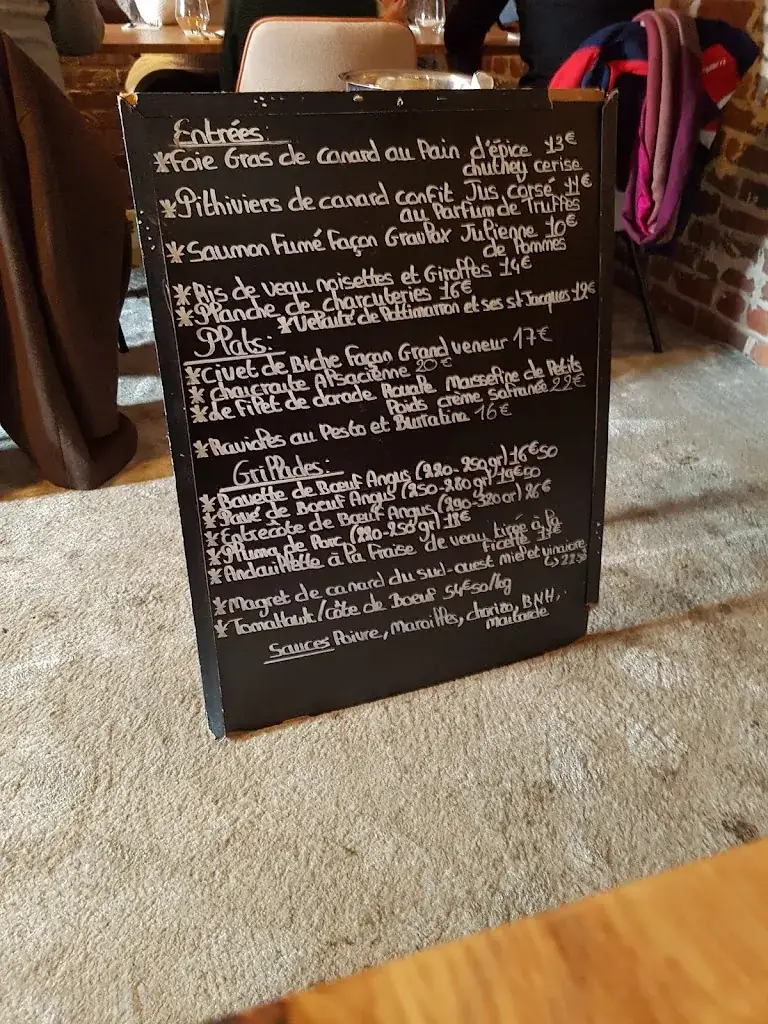 Entrées:
*Foie Gras de canard au Pain d'épice 13€
chutney cerise
*Pithiviers de canard confit Jus corsé 11€
au Parfum de Truffes
*Saumon Fumé Façon Gravlax Julienne 10€
de Pommes
*Ris de veau noisettes et Girolles 14€
*Planche de charcuteries 16€
*Velouté de Potimarron et ses st Jacques 12€
Plats:
*civet de Biche Façon Grand veneur 17€
*choucroute Alsacienne 20€
*de Filet de dorade Royale Mousseline de Petits
Poids crème safranée 22€
*Ravioles au Pesto et Burratina 16€
Grillades:
*Bavette de Bœuf Angus (220-250gr) 16€50
*Pavé de Boeuf Angus (250-280gr) 19€50
*Entrecôte de Bœuf Angus (290-320gr) 26€
*Pluma de Porc (220-250gr) 18€
*Andouillette à la Fraise de veau tirée à la
Ficelle
*Magret de canard du sud-ouest miel et vinaigre
↳ 22.50
*Tomahauk/côte de Boeuf 54€50/kg
Sauces Poivre, Maroilles, chorizo, BNH,
Moutarde